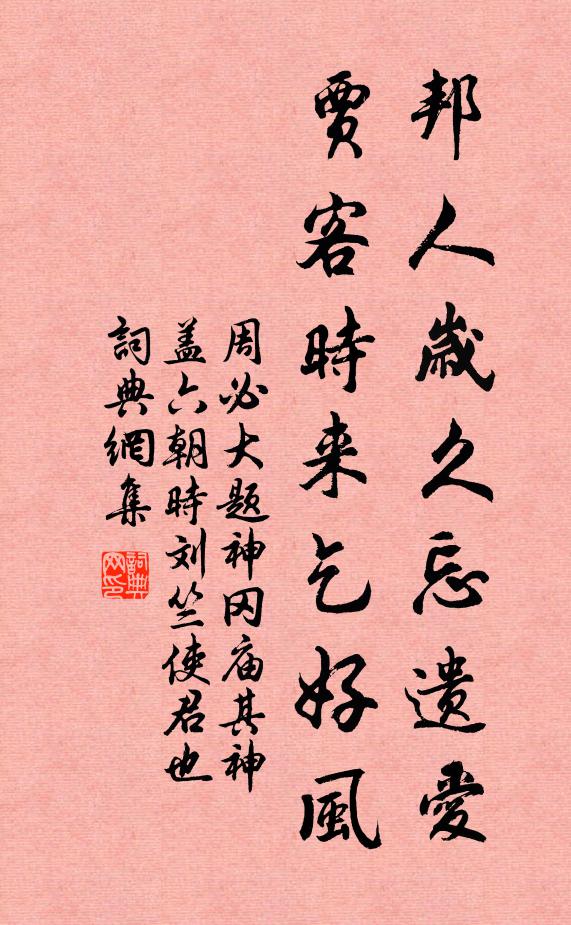 邦人歲久忘遺愛
賈客時来乞好風
周必大题神冈庙其神
盖六朝時刘竺使君也
詞典網集
詞典網印